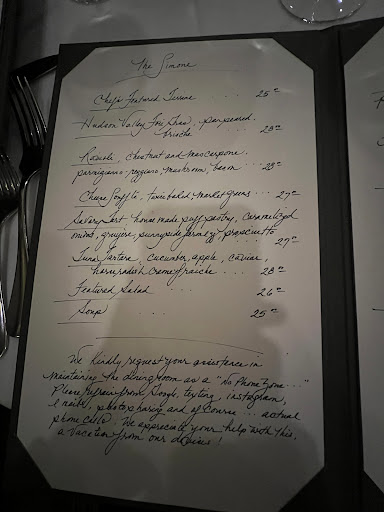 The Simone
Chef's Featured Terrine ... 25.00
Hudson Valley Foie Gras, pan seared,
brioche ... 28.00
Ravioli, chestnut and mascarpone,
parmigiano reggiano, mushroom, bacon ... 28.00
Cheese Soufflé, twice baked, market greens ... 27.00
Savory Tart homemade puff pastry, caramelized
onions, gruyère, sunnyside farm egg, prosciutto
27.00
Tuna Tartare, cucumber, apple, caviar,
horseradish creme fraiche ... 28.00
Featured Salad ... 26.00
Soup ... 25.00
We kindly request your assistance in
maintaining the dining room as a "No Phone Zone..."
Please refrain from Google, texting, instagram,
emails, photo sharing and of course ... actual
phone calls. We appreciate your help with this,
a vacation from our devices!